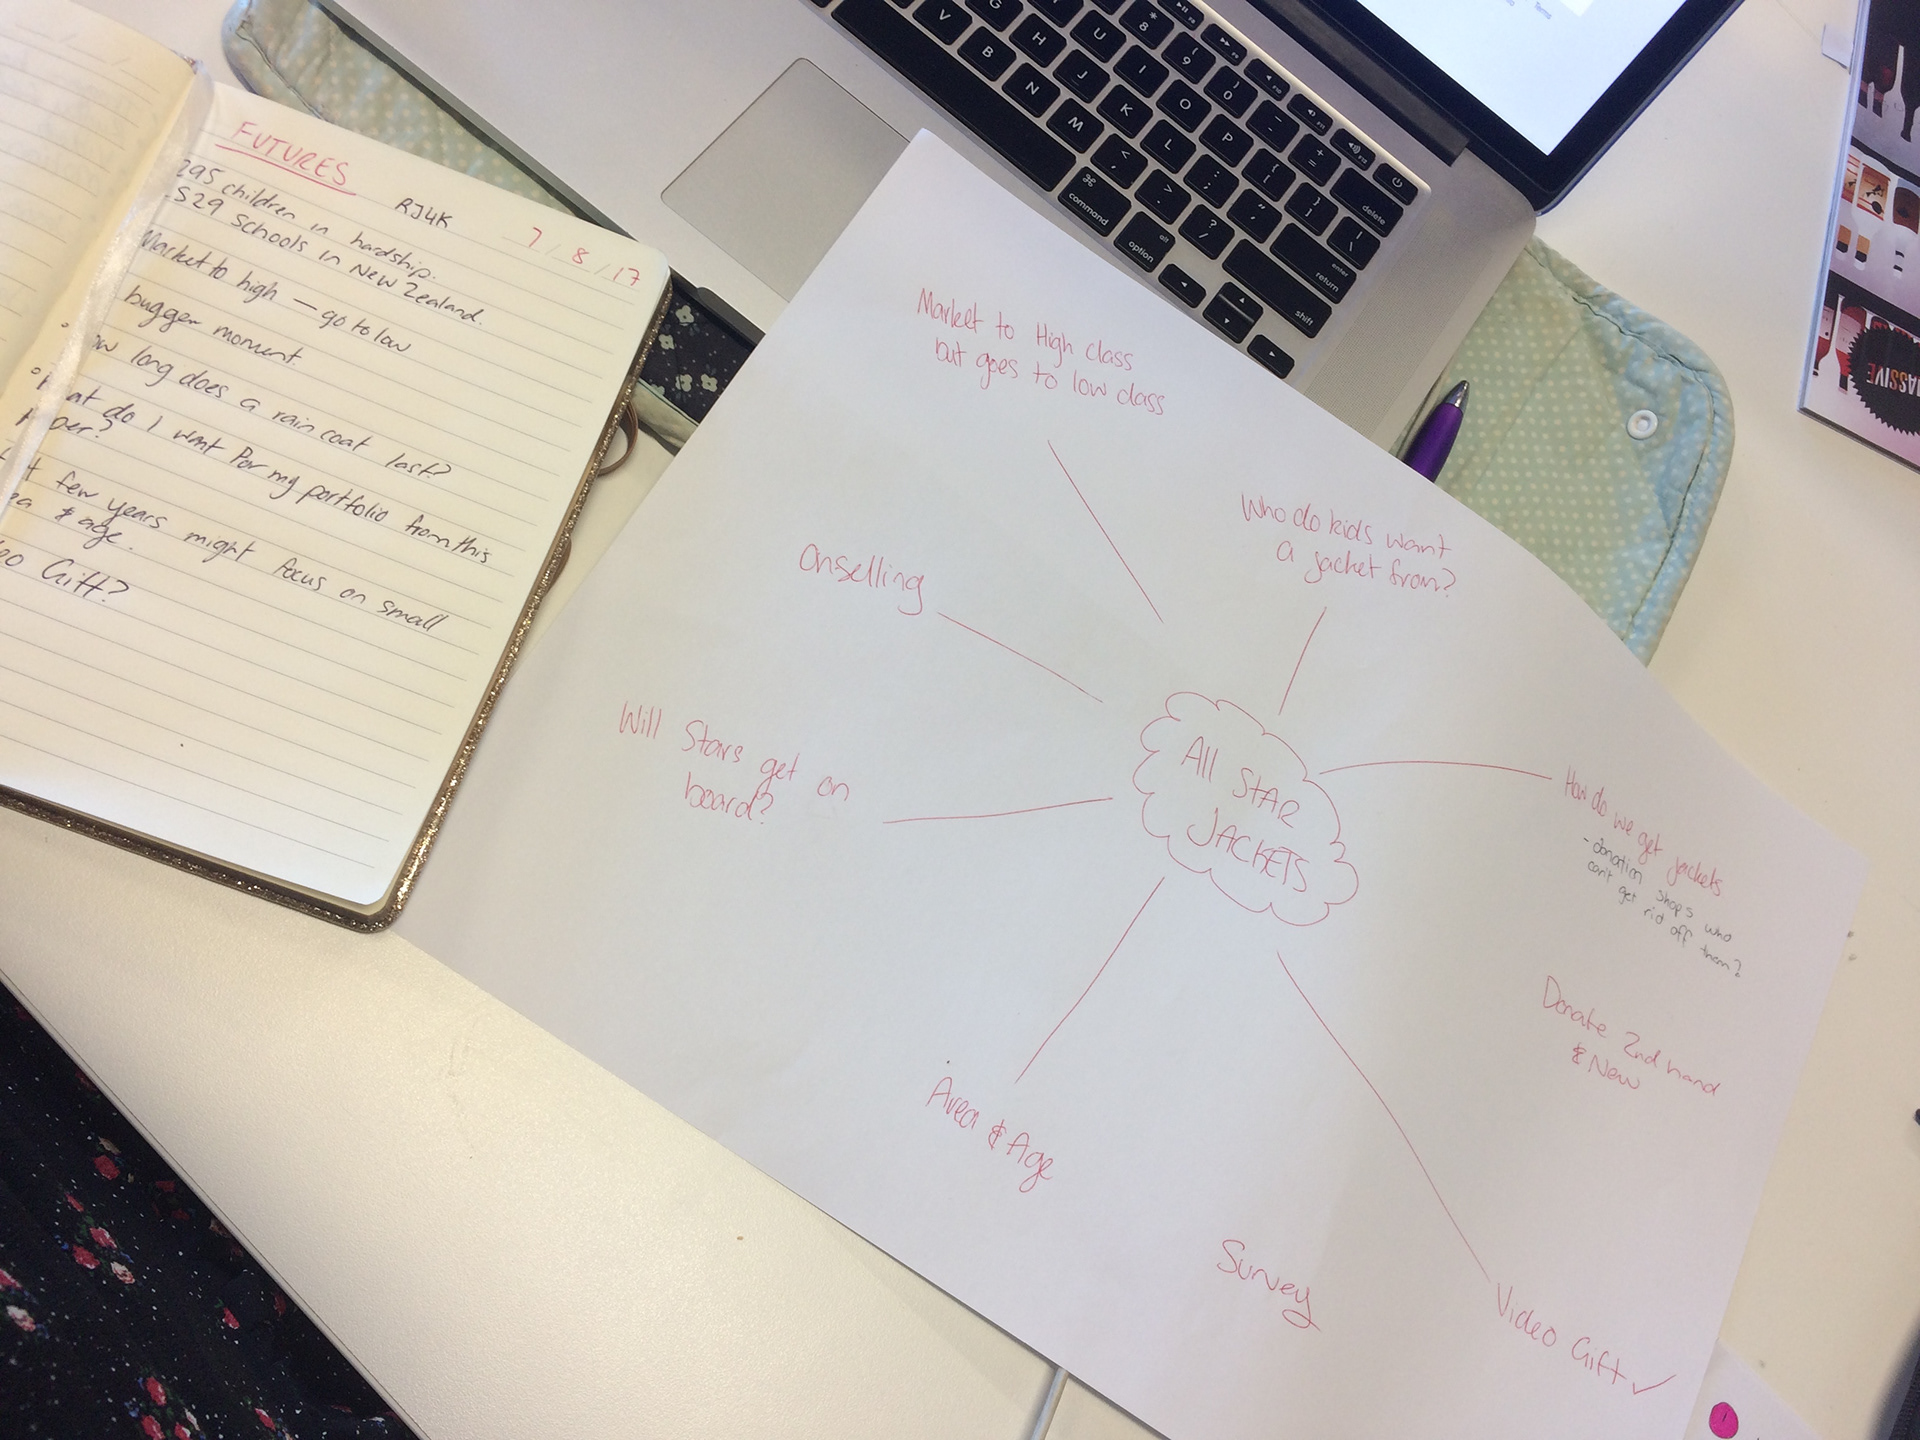 FUTURES
RJ4K
7/8/17
295 children in hardship.
529 Schools in New Zealand.
Market to high — go to low
bugger moment
long does a rain coat last?
do I want for my portfolio from this
few years might focus on small
& age.
Gift?
Market to High class
but goes to low class
Who do kids want
a jacket from?
Onselling
Will Stars get on
board?
All STAR
JACKETS
How do we get jackets
- donation shops who
can't get rid off them?
Donate 2nd hand
& New
Area & Age
Survey
Video Gift ✓
command
option
alt
delete
enter
return
shift
Terms
MASSIVE